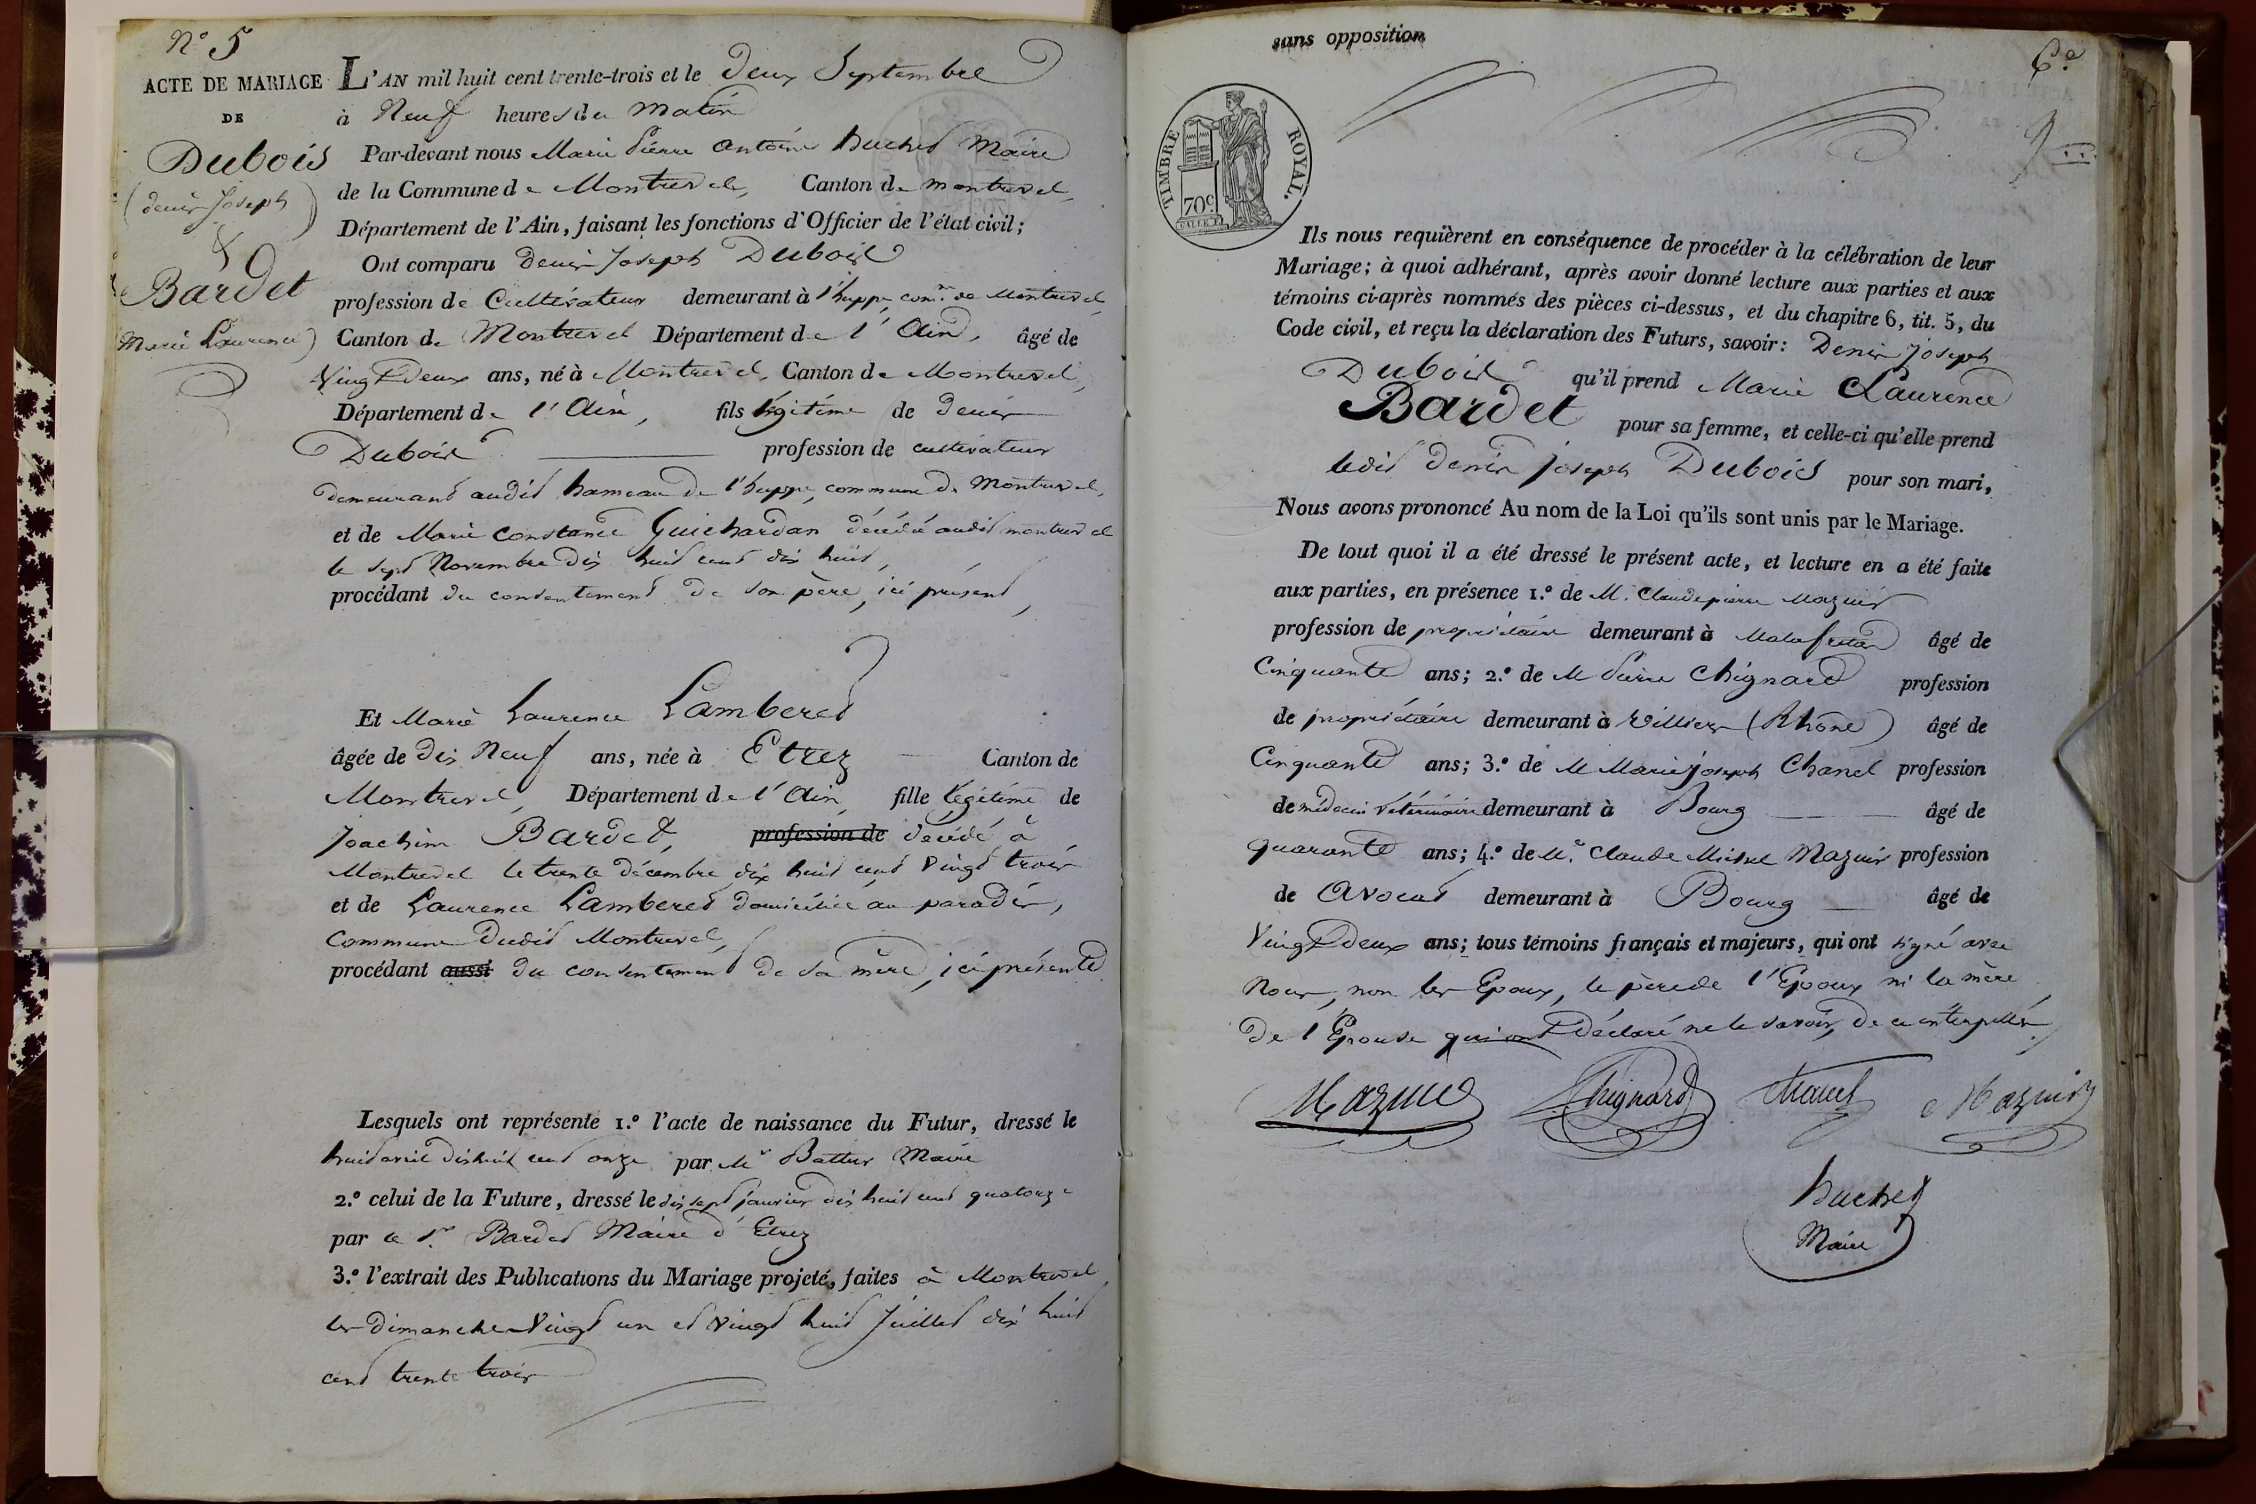 N.º 5
ACTE DE MARIAGE
DE
Dubois
(denis Joseph)
&
Bardet
Marie Laurence)
L'AN mil huit cent trente-trois et le deux Septembre
à Neuf heures du Matin
Par-devant nous Marie Pierre Antoine buchet Maire
de la Commune de Montrevel, Canton de montrevel,
Département de l'Ain, faisant les fonctions d'Officier de l'état civil;
Ont comparu denis Joseph Dubois
profession de Cultivateur demeurant à l'huppe, com.ne de Montrevel,
Canton de Montrevel Département de l'Ain, âgé de
Vingt Deux ans, né à Montrevel, Canton de Montrevel,
Département de l'Ain, fils légitime de denis
Dubois profession de cultivateur
demeurant audit hameau de l'huppe, commune de Montrevel,
et de Marie constance Guichardan décédée audit montrevel
le sept Novembre dix huit cent dix huit,
procédant du consentement de son père, ici présent,
Et Marie Laurence Lamberet
âgée de dix Neuf ans, née à Etrez Canton de
Montrevel, Département de l'Ain, fille légitime de
Joachim Bardet, profession de décédé à
Montrevel le trente décembre dix huit cent vingt trois
et de Laurence Lamberet domiciliée au paradis,
Commune Dudit Montrevel,
procédant aussi du consentement de sa mère, ici présente
Lesquels ont représente 1.º l'acte de naissance du Futur, dressé le
huit avril dix huit cent onze par Mr Battur Maire
2.º celui de la Future, dressé le dix sept janvier dix huit cent quatorze
par le Sr Bardet Maire d'Etrez
3.º l'extrait des Publications du Mariage projeté, faites à Montrevel,
les dimanches Vingt un et Vingt huit Juillet dix huit
cent trente trois
sans opposition
6.e
TIMBRE ROYAL.
70c
Ils nous requièrent en conséquence de procéder à la célébration de leur
Mariage; à quoi adhérant, après avoir donné lecture aux parties et aux
témoins ci-après nommés des pièces ci-dessus, et du chapitre 6, tit. 5, du
Code civil, et reçu la déclaration des Futurs, savoir: Denis Joseph
Dubois qu'il prend Marie Laurence
Bardet pour sa femme, et celle-ci qu'elle prend
ledit denis Joseph Dubois pour son mari,
Nous avons prononcé Au nom de la Loi qu'ils sont unis par le Mariage.
De tout quoi il a été dressé le présent acte, et lecture en a été faite
aux parties, en présence 1.º de M. Claude pierre Mazuir
profession de propriétaire demeurant à Malafretaz âgé de
Cinquante ans; 2.º de M Pierre Chignard profession
de propriétaire demeurant à Villiers (Rhône) âgé de
Cinquante ans; 3.º de M Marie Joseph Chanel profession
de médecin vétérinaire demeurant à Bourg âgé de
quarante ans; 4.º de M.e Claude Michel Mazuir profession
de Avocat demeurant à Bourg âgé de
Vingt Deux ans; tous témoins français et majeurs, qui ont signé avec
Nous, non les Epoux, le père de l'Epoux ni la mère
De l'Epouse qui ont déclaré ne le savoir, de ce interpellés.
Mazuir Chignard Chanel C Mazuir
buchet
Maire